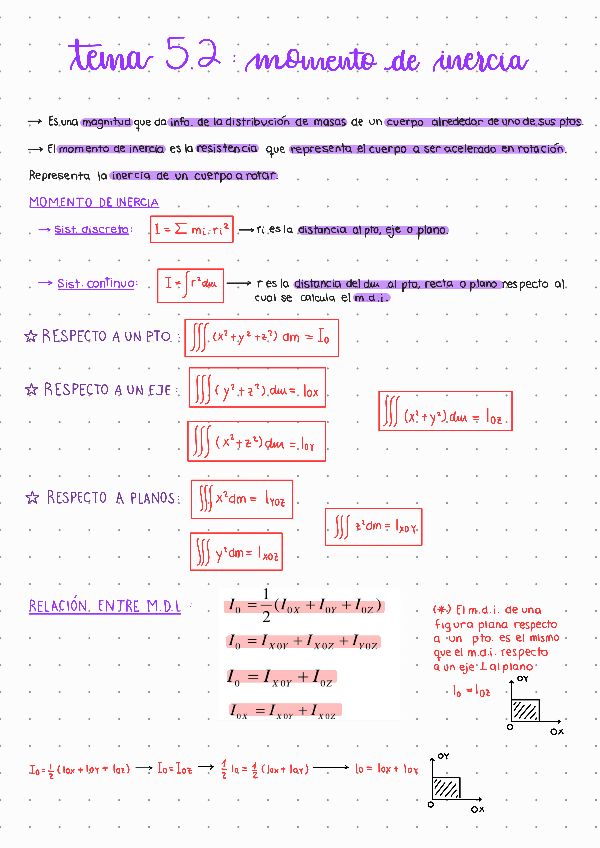 tema 5.2: momento de inercia
→ Es una magnitud que da info. de la distribución de masas de un cuerpo alrededor de uno de sus ptos.
→ El momento de inercia es la resistencia que representa el cuerpo a ser acelerado en rotación.
Representa la inercia de un cuerpo a rotar.
MOMENTO DE INERCIA
→ Sist. discreto: I = Σ mi·ri² → ri es la distancia al pto, eje o plano.
→ Sist. continuo: I = ∫r²dm → r es la distancia del dm al pto, recta o plano respecto al
cual se calcula el m.d.i.
☆ RESPECTO A UN PTO.: ∭(x²+y²+z²) dm = I₀
☆ RESPECTO A UN EJE: ∭(y²+z²) dm = Iox
∭(x²+y²) dm = Ioz
∭(x²+z²) dm = IoY
☆ RESPECTO A PLANOS: ∭x²dm = IYOZ
∭z²dm = IXOY
∭y²dm = IXOZ
RELACIÓN ENTRE M.D.I.:
I₀ = 1/2 (I0X + I0Y + I0Z)
I₀ = IX0Y + IX0Z + IY0Z
I₀ = IX0Y + I0Z
I0X = IX0Y + IX0Z
(*) El m.d.i. de una
figura plana respecto
a un pto. es el mismo
que el m.d.i. respecto
a un eje ⊥ al plano
I₀ = Ioz
OY
O
OX
I₀ = 1/2 (Iox + IoY + Ioz) → I₀ = Ioz → 1/2 I₀ = 1/2 (Iox + IoY) → I₀ = Iox + IoY
OY
O
OX